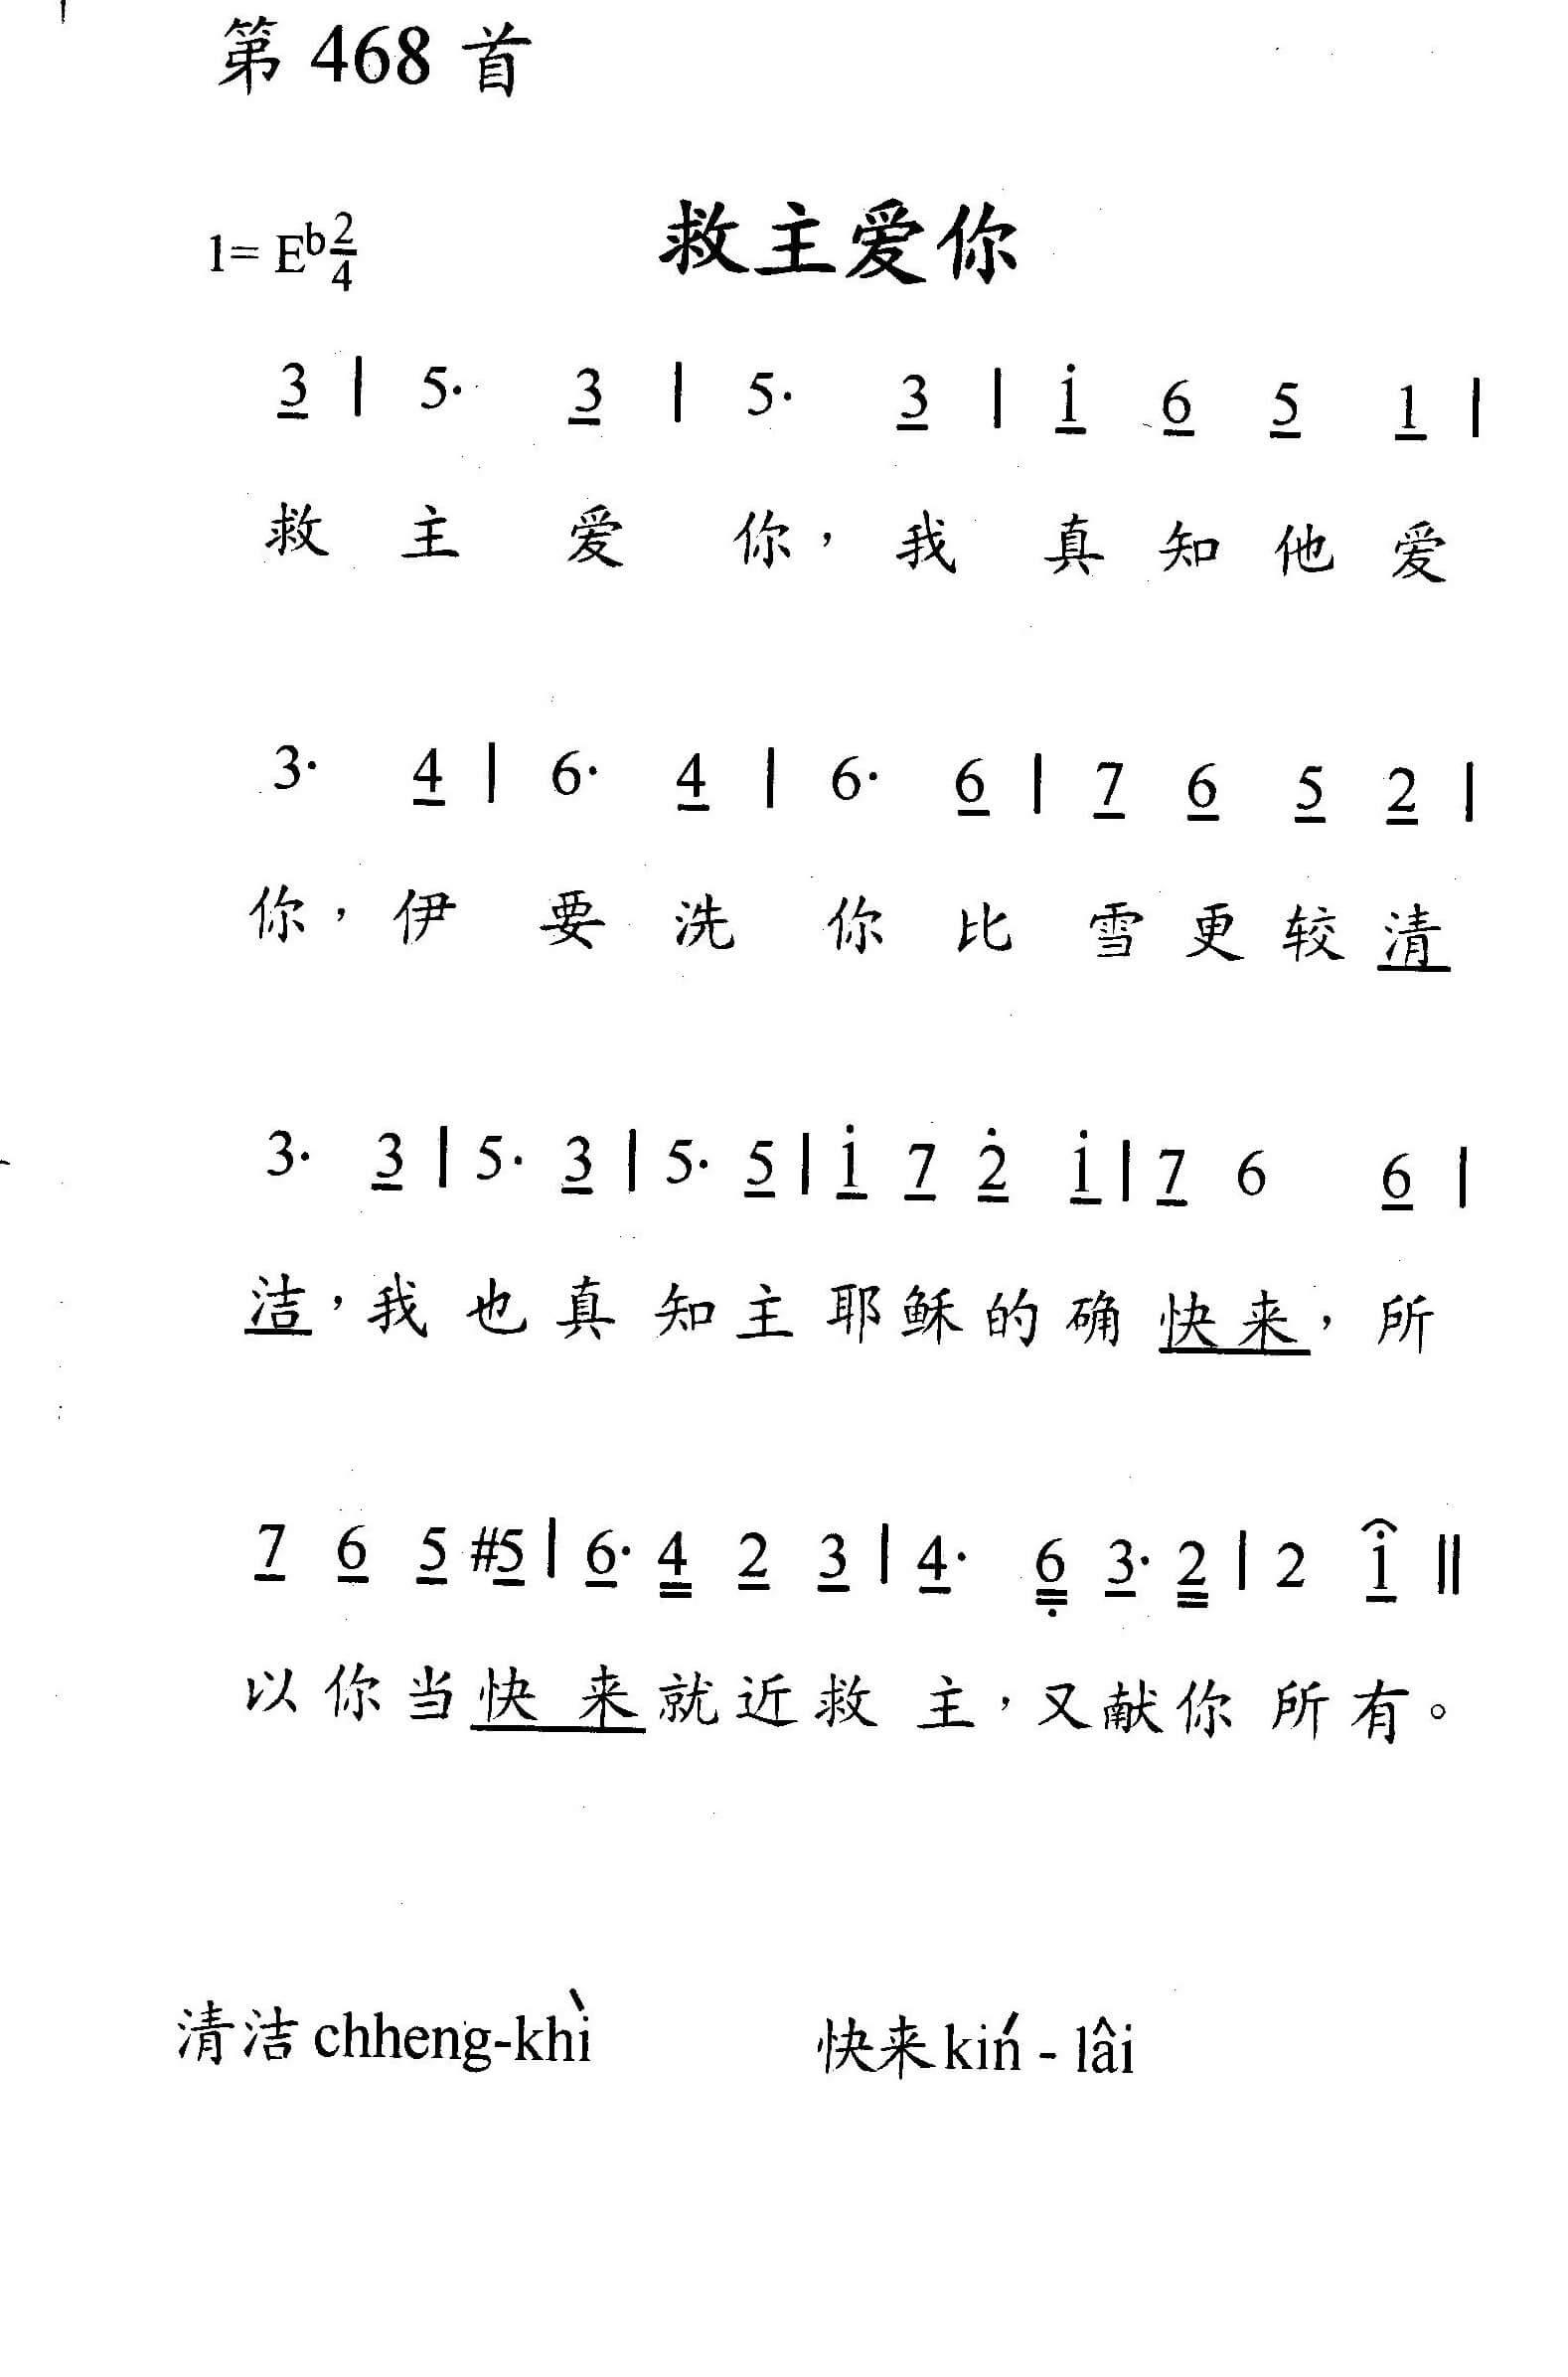 第 468 首
1= E♭ 2/4 救主爱你
3 | 5· 3 | 5· 3 | i 6 5 1 |
救 主 爱 你，我 真 知 他 爱
3· 4 | 6· 4 | 6· 6 | 7 6 5 2 |
你，伊 要 洗 你 比 雪 更 较 清
3· 3 | 5· 3 | 5· 5 | i 7 2̇ i | 7 6 6 |
洁，我 也 真 知 主 耶 稣 的 确 快 来，所
7 6 5 #5 | 6· 4 2 3 | 4· 6̣ 3· 2 | 2 i ||
以 你 当 快 来 就 近 救 主，又 献 你 所 有。
清洁 chheng-khì 快来 kiń - lâi